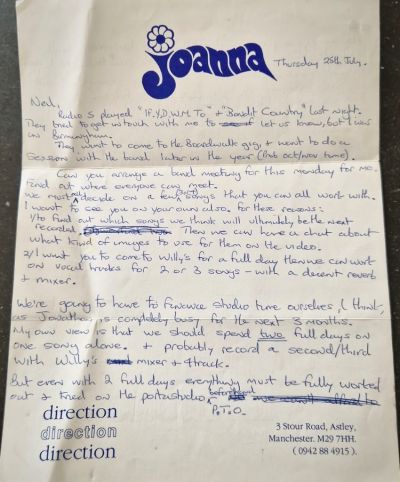 Joanna
Thursday 25th July.
Neil,
Radio 5 played "I F.Y.D.W.M To" + "Bandit Country" last night.
They tried to get in touch with me to let us know, but I was
in Birmingham.
They want to come to the Boardwalk gig, + want to do a
session with the band later in the year (Prob oct/nov time).
Can you arrange a band meeting for this monday for me.
Find out where everyone can meet.
We must decide on a few songs that you can all work with.
I want to see you on your own also, for these reasons:
1/ to find out which songs we think will ultimately be the next
recorded Then we can have a chat about
what kind of images to use for them on the video.
2/ I want you to come to Willy's for a full day then we can work
on vocal tracks for 2 or 3 songs - with a decent reverb
+ mixer.
We're going to have to finance studio time ourselves, (I think,
as Jonathan is completely busy for the next 3 months.
My own view is that we should spend two full days on
one song alone. + probably record a second/third
with Willy's mixer + 4 track.
But even with 2 full days everything must be fully worked
out + tried on the portastudio beforehand
P.T.O.
direction
direction
direction
3 Stour Road, Astley,
Manchester. M29 7HH.
( 0942 88 4915 ).